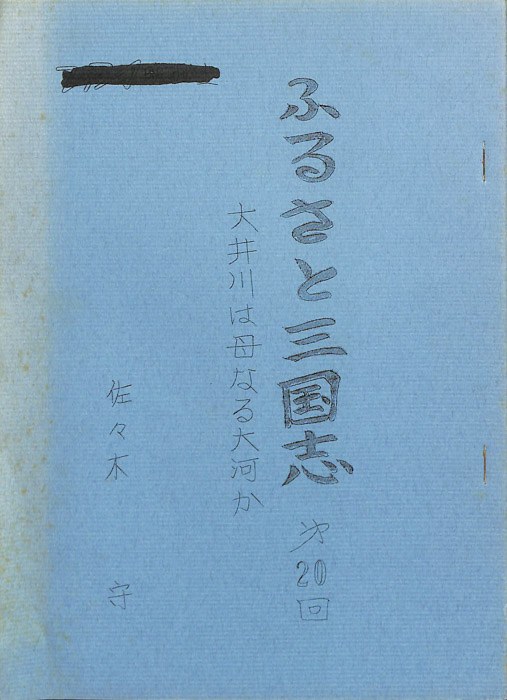 ふるさと三国志 第20回
大井川は母なる大河か
佐々木 守